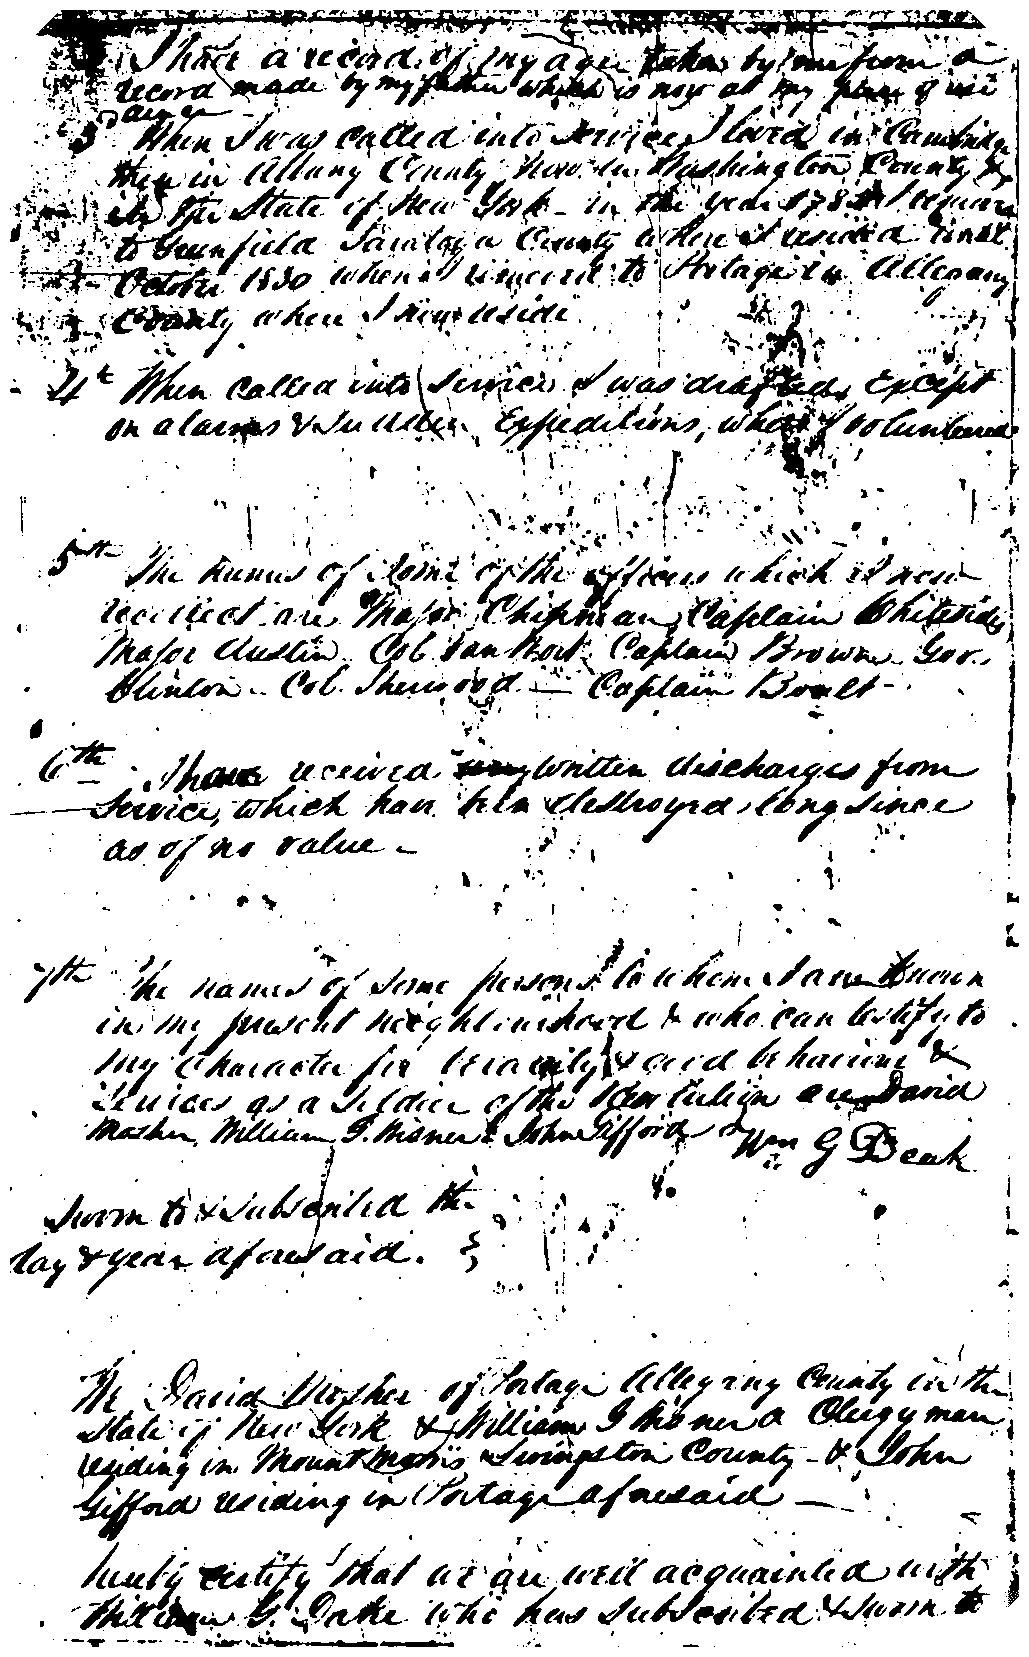 I have a record of my age taken by me from a
record made by my father which is now at my place of resi
dence
3d When I was called into service I lived in Cambridge
then in Albany County now in Washington County &
in the State of New York - in the year 178 I
to Greenfield Saratoga County where I resided until
October 1830 when I removed to Portage in Allegany
County where I now reside
4th When called into service I was drafted, except
on alarms & sudden Expeditions, when I volunteered
5th The names of some of the officers which I now
recollect are Major Chipman, Captain Whiteside
Major Austin Col Van Captain Brown Gov.
Clinton - Col. Sherwood - Captain
6th I have received written discharges from
service, which have been destroyed, long since
as of no value -
7th The names of some persons to whom I am known
in my present neighbourhood & who can testify to
my character for veracity & good behaviour &
services as a soldier of the Revolution are David
Mosher, William G. Wisner & John Gifford
Wm G Deak
Sworn to & subscribed the
day & year aforesaid.
We David Mosher of Portage Allegany County in the
State of New York & William G Wisner a Clergyman
residing in Mount Morris Livingston County - & John
Gifford residing in Portage aforesaid -
hereby certify that we are well acquainted with
William G. Dake who has subscribed & sworn to